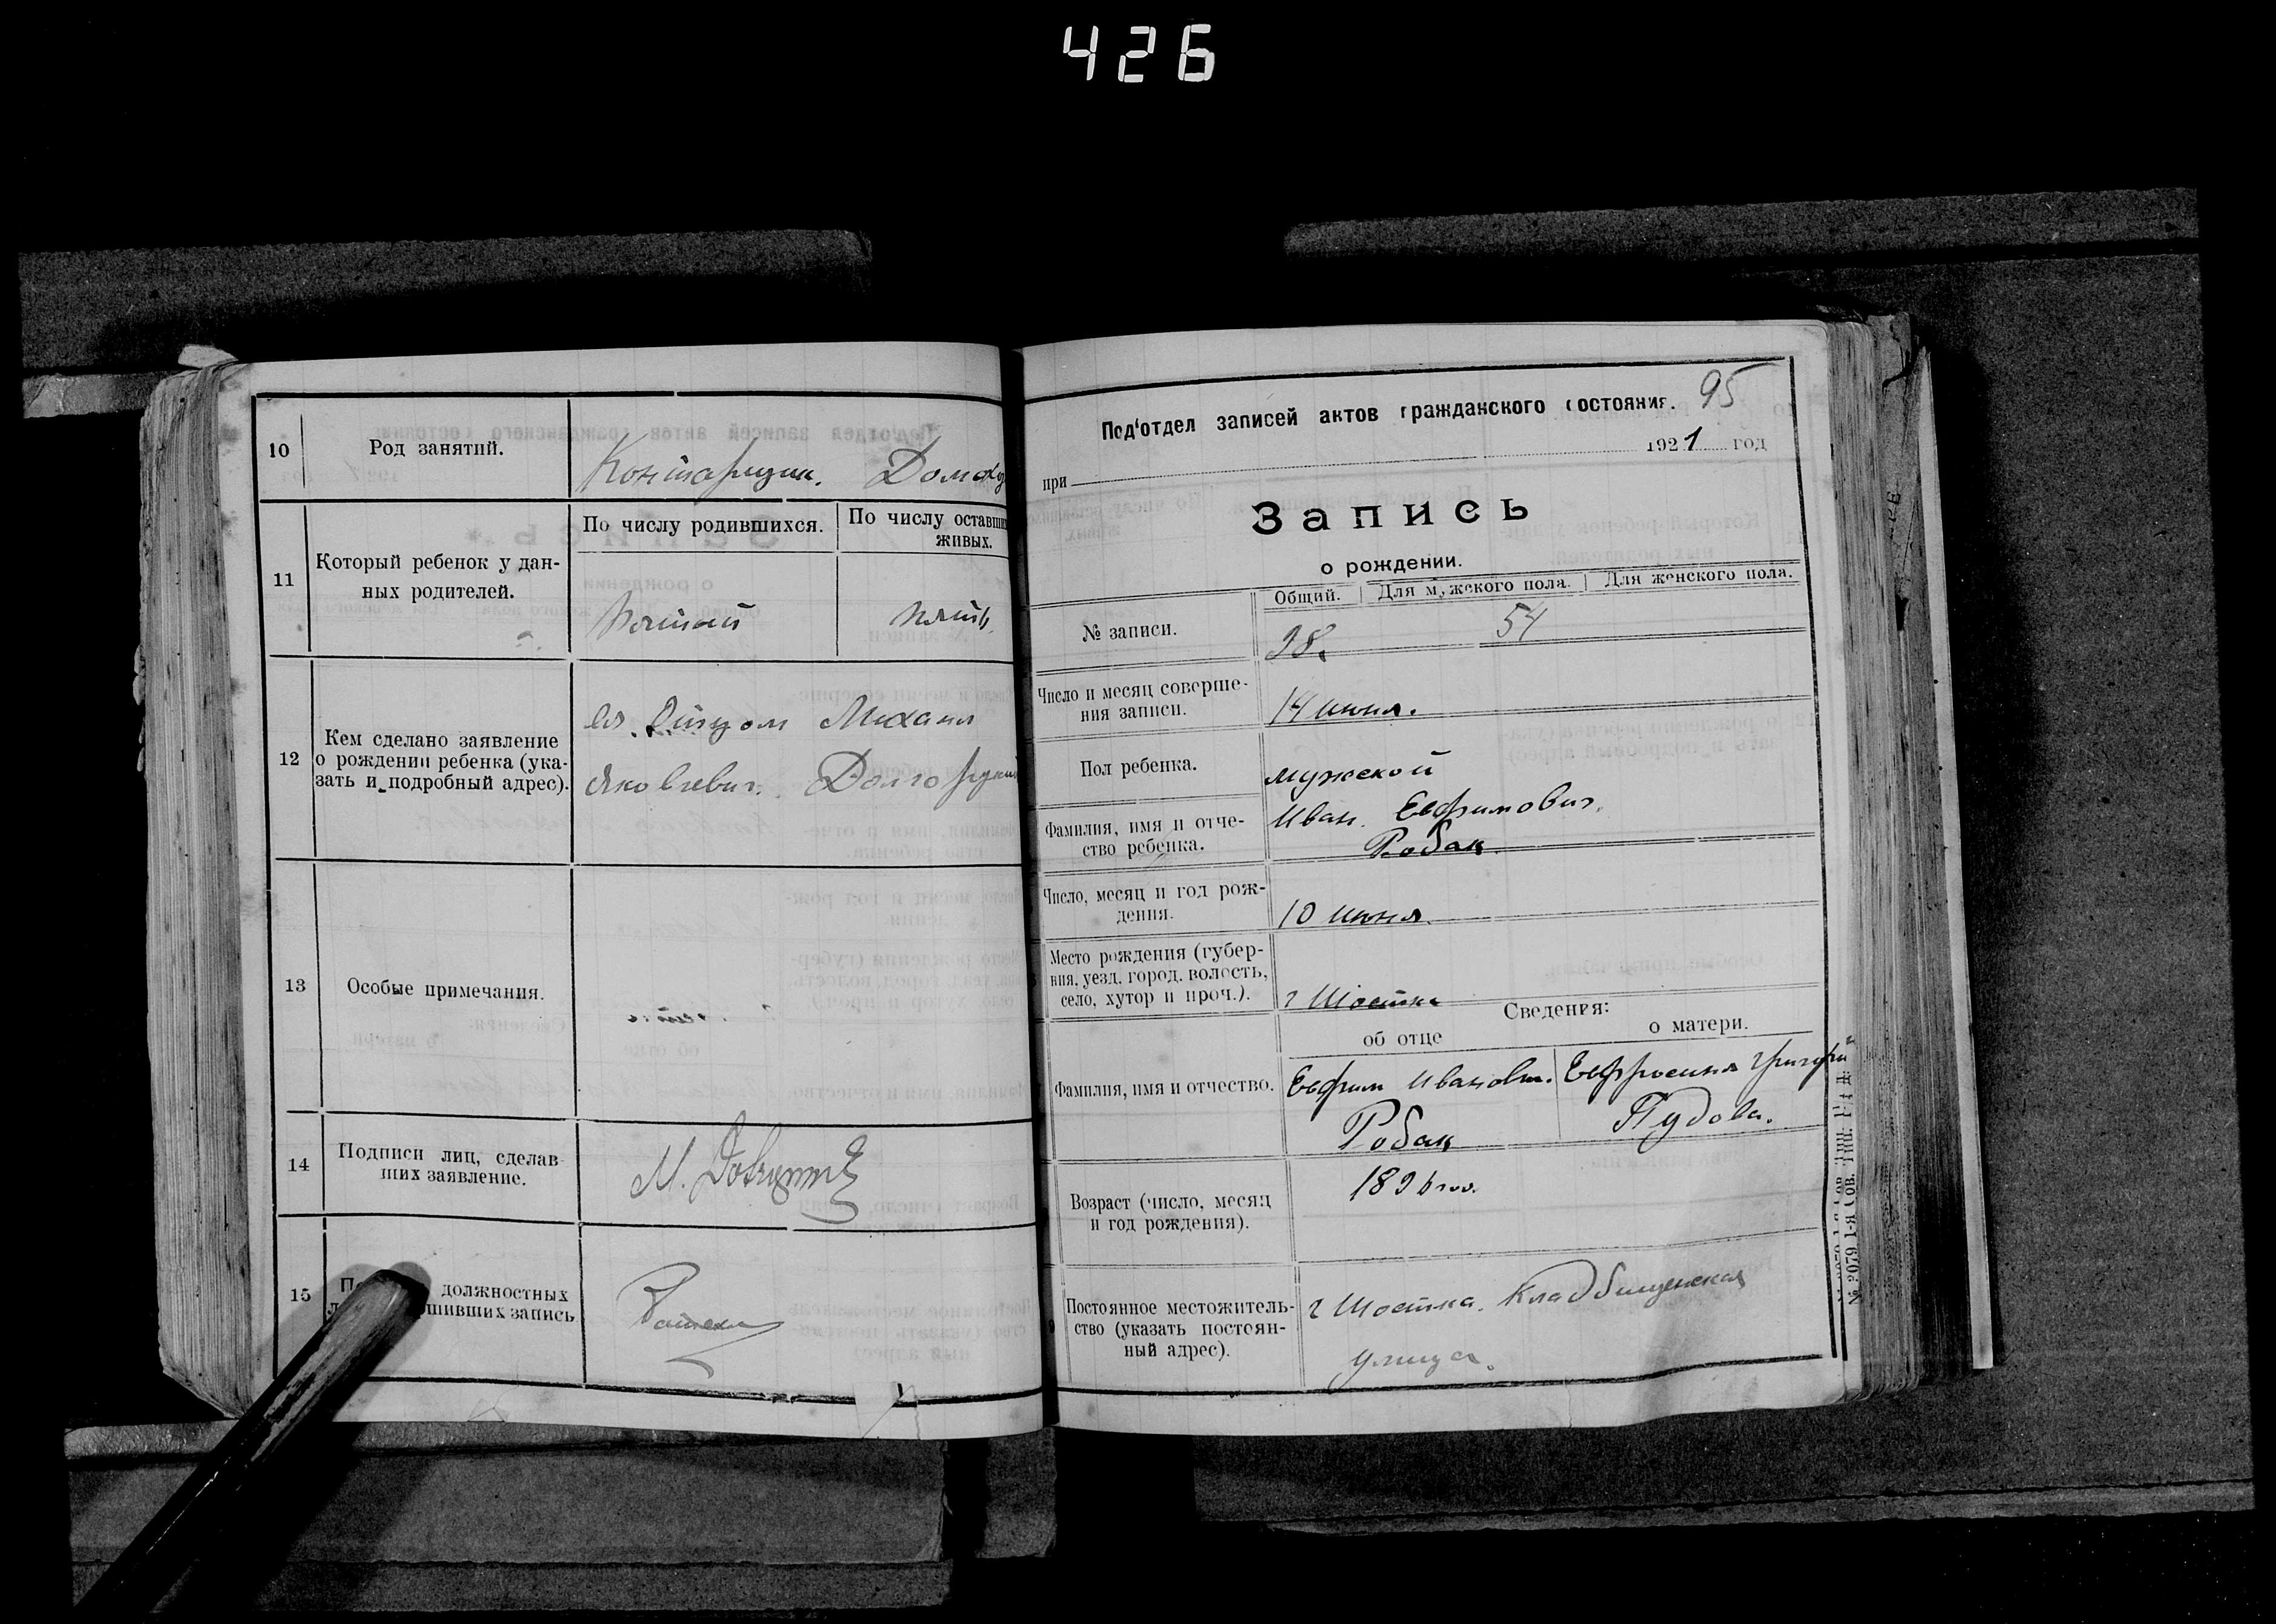 426
10
Род занятий.
Конторщик. Домохо
11
Который ребенок у дан-
ных родителей.
По числу родившихся.
По числу оставши
живых.
Пятый
пять
12
Кем сделано заявление
о рождении ребенка (ука-
зать и подробный адрес).
Отцом Михаил
Яковлевич. Долгоруки
13
Особые примечания.
14
Подписи лиц, сделав-
ших заявление.
М.
15
должностных
шивших запись
95
Под'отдел записей актов гражданского состояния.
при
1921 год
Запись
о рождении.
Общий.
Для мужского пола.
Для женского пола.
№ записи.
98.
54
Число и месяц соверше-
ния записи.
14 июня.
Пол ребенка.
мужской
Фамилия, имя и отче-
ство ребенка.
Иван. Евфимович.
Робак.
Число, месяц и год рож-
дения.
10 июня.
Место рождения (губер-
ния, уезд, город, волость,
село, хутор и проч.).
г Шостка
Сведения:
об отце
о матери.
Фамилия, имя и отчество.
Евфим Иванович.
Робак
Евфросиния Григори
Пудова.
Возраст (число, месяц
и год рождения).
1896 год.
Постоянное местожитель-
ство (указать постоян-
ный адрес).
г Шостка. Кладбищенская
улица.